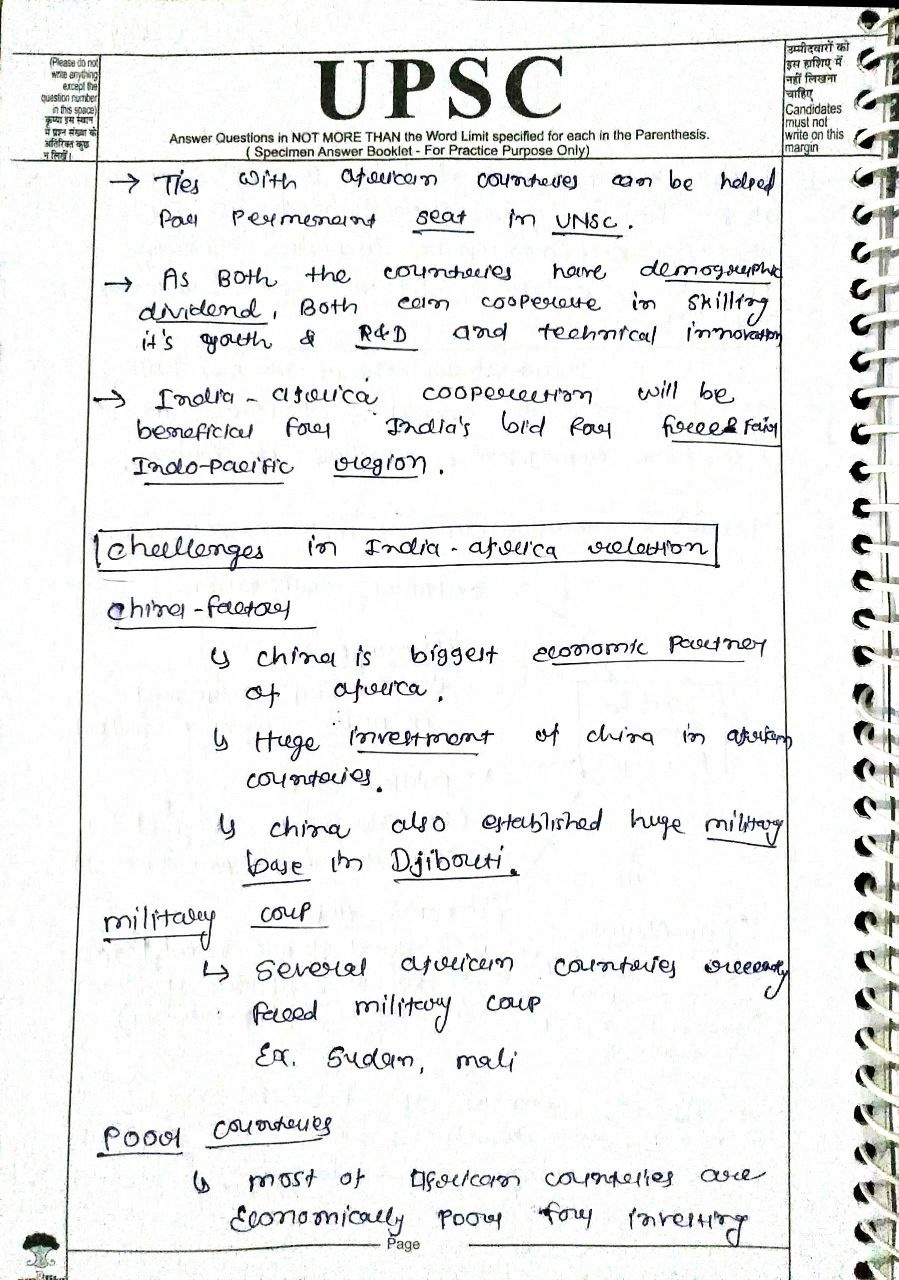 (Please do not
write anything
except the
question number
in this space)
कृपया इस स्थान
में प्रश्न संख्या के
अतिरिक्त कुछ
न लिखें।
UPSC
Answer Questions in NOT MORE THAN the Word Limit specified for each in the Parenthesis.
( Specimen Answer Booklet - For Practice Purpose Only)
उम्मीदवारों को
इस हाशिए में
नहीं लिखना
चाहिए
Candidates
must not
write on this
margin
→ Ties with african countries can be helped
for permenant seat in UNSC.
→ As Both the countries have demographic
dividend, Both can cooperate in skilling
it's youth & R&D and technical innovation
→ India - africa cooperation will be
beneficial for India's bid for free & fair
Indo-pacific region.
challenges in India - africa relation
china - factor
↳ china is biggest economic partner
of africa.
↳ Huge investment of china in african
countries.
↳ china also established huge military
base in Djibouti.
military coup
↳ several african countries recently
faced military coup
Ex. Sudan, mali
poor countries
↳ most of African countries are
Economically poor for investing
Page